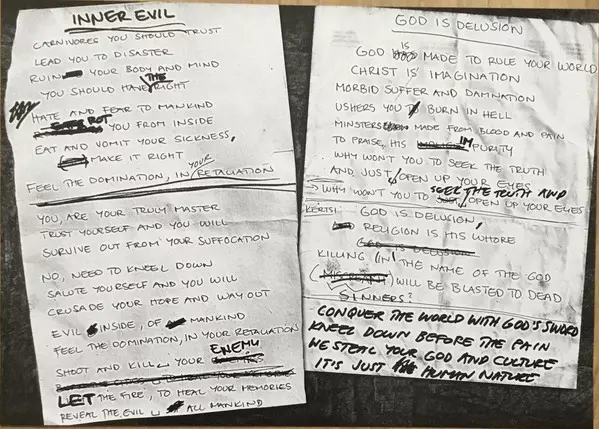 INNER EVIL
CARNIVORES YOU SHOULD TRUST
LEAD YOU TO DISASTER
RUIN YOUR BODY AND MIND
YOU SHOULD HAVE THE RIGHT
HATE AND FEAR TO MANKIND
ROT YOU FROM INSIDE
EAT AND VOMIT YOUR SICKNESS,
MAKE IT RIGHT
FEEL THE DOMINATION, IN YOUR RETALIATION
YOU, ARE YOUR TRULY MASTER
TRUST YOURSELF AND YOU WILL
SURVIVE OUT FROM YOUR SUFFOCATION
NO, NEED TO KNEEL DOWN
SALUTE YOURSELF AND YOU WILL
CRUSADE YOUR HOPE AND WAY OUT
EVIL INSIDE, OF MANKIND
FEEL THE DOMINATION, IN YOUR RETALIATION
SHOOT AND KILL YOUR ENEMY
LET THE FIRE, TO HEAL YOUR MEMORIES
REVEAL THE EVIL ALL MANKIND
GOD IS DELUSION
GOD IS MADE TO RULE YOUR WORLD
CHRIST IS IMAGINATION
MORBID SUFFER AND DAMNATION
USHERS YOU BURN IN HELL
MINSTERS MADE FROM BLOOD AND PAIN
TO PRAISE, HIS IMPURITY
WHY WON'T YOU TO SEEK THE TRUTH
AND JUST OPEN UP YOUR EYES
WHY WON'T YOU TO SEEK THE TRUTH AND
OPEN UP YOUR EYES
KERTSI GOD IS DELUSION,
RELIGION IS HIS WHORE
GOD IS DELUSION
KILLING IN THE NAME OF THE GOD
WILL BE BLASTED TO DEAD
SINNERS?
CONQUER THE WORLD WITH GOD'S SWORD
KNEEL DOWN BEFORE THE PAIN
WE STEAL YOUR GOD AND CULTURE
IT'S JUST HUMAN NATURE